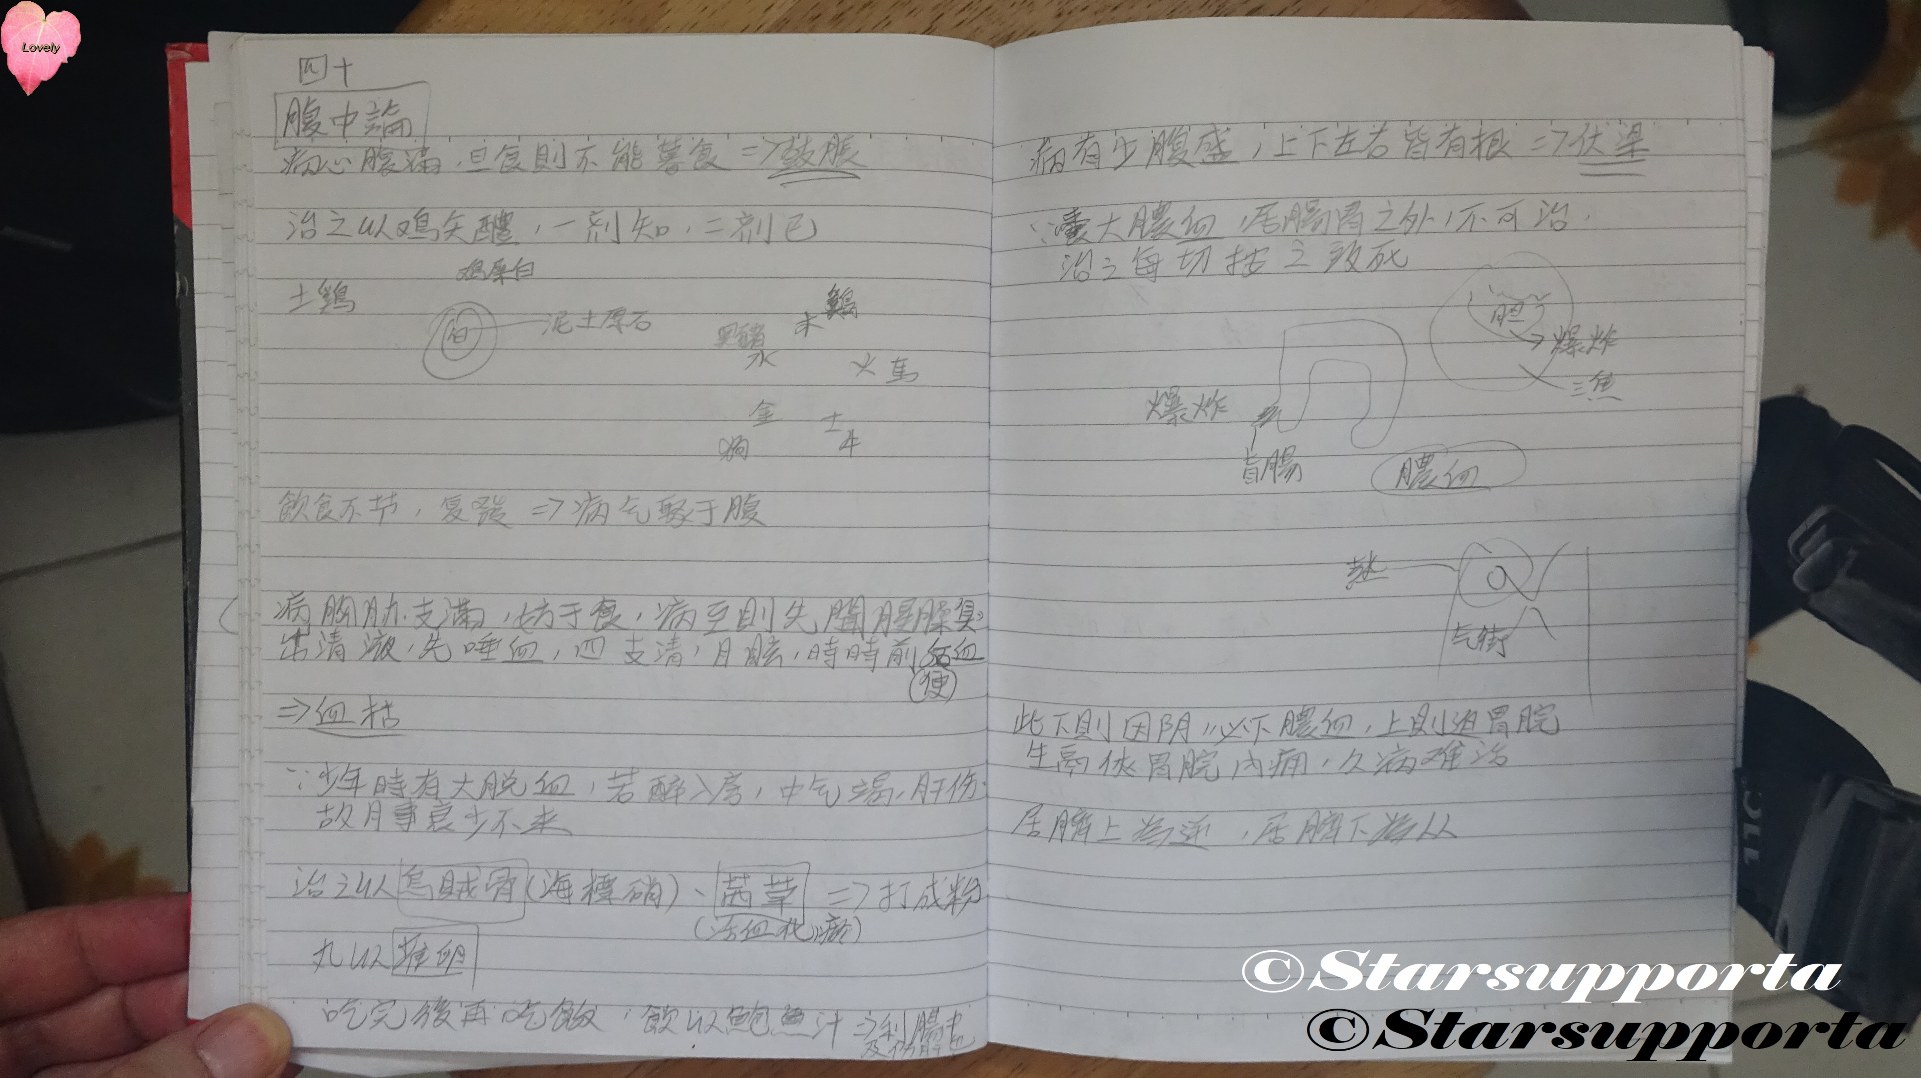 Lovely
四十
腹中論
病心腹滿,旦食則不能暮食 => 鼓脹
治之以鸡矢醴,一剂知,二剂已
鸡屎白
土鷄
白
泥土原石
黑豬
水
木
鷄
火馬
金
狗
土
牛
飲食不节,复发 => 病气聚于腹
病胸肋支滿,妨于食,病至則先聞腥臊臭,
出清液,先唾血,四支清,目眩,時時前后血
(便)
=> 血枯
∵少年時有大脱血,若醉入房,中气竭,肝伤.
故月事衰少不来
治之以烏贼骨(海螵硝)、茜草 => 打成粉
(活血化瘀)
丸以雀卵
吃完後再吃飯,飲以鮑魚汁 => 利腸中
及伤肝也
病有少腹盛,上下左右皆有根 => 伏梁
∵裹大膿血,居腸胃之外,不可治.
治之每切按之致死
胆
爆炸
三焦
爆炸
盲腸
膿血
气街
此下則因阴,必下膿血,上則迫胃脘
生鬲侠胃脘内痈,久病难治
居臍上為逆,居臍下為从
©Starsupporta
©Starsupporta